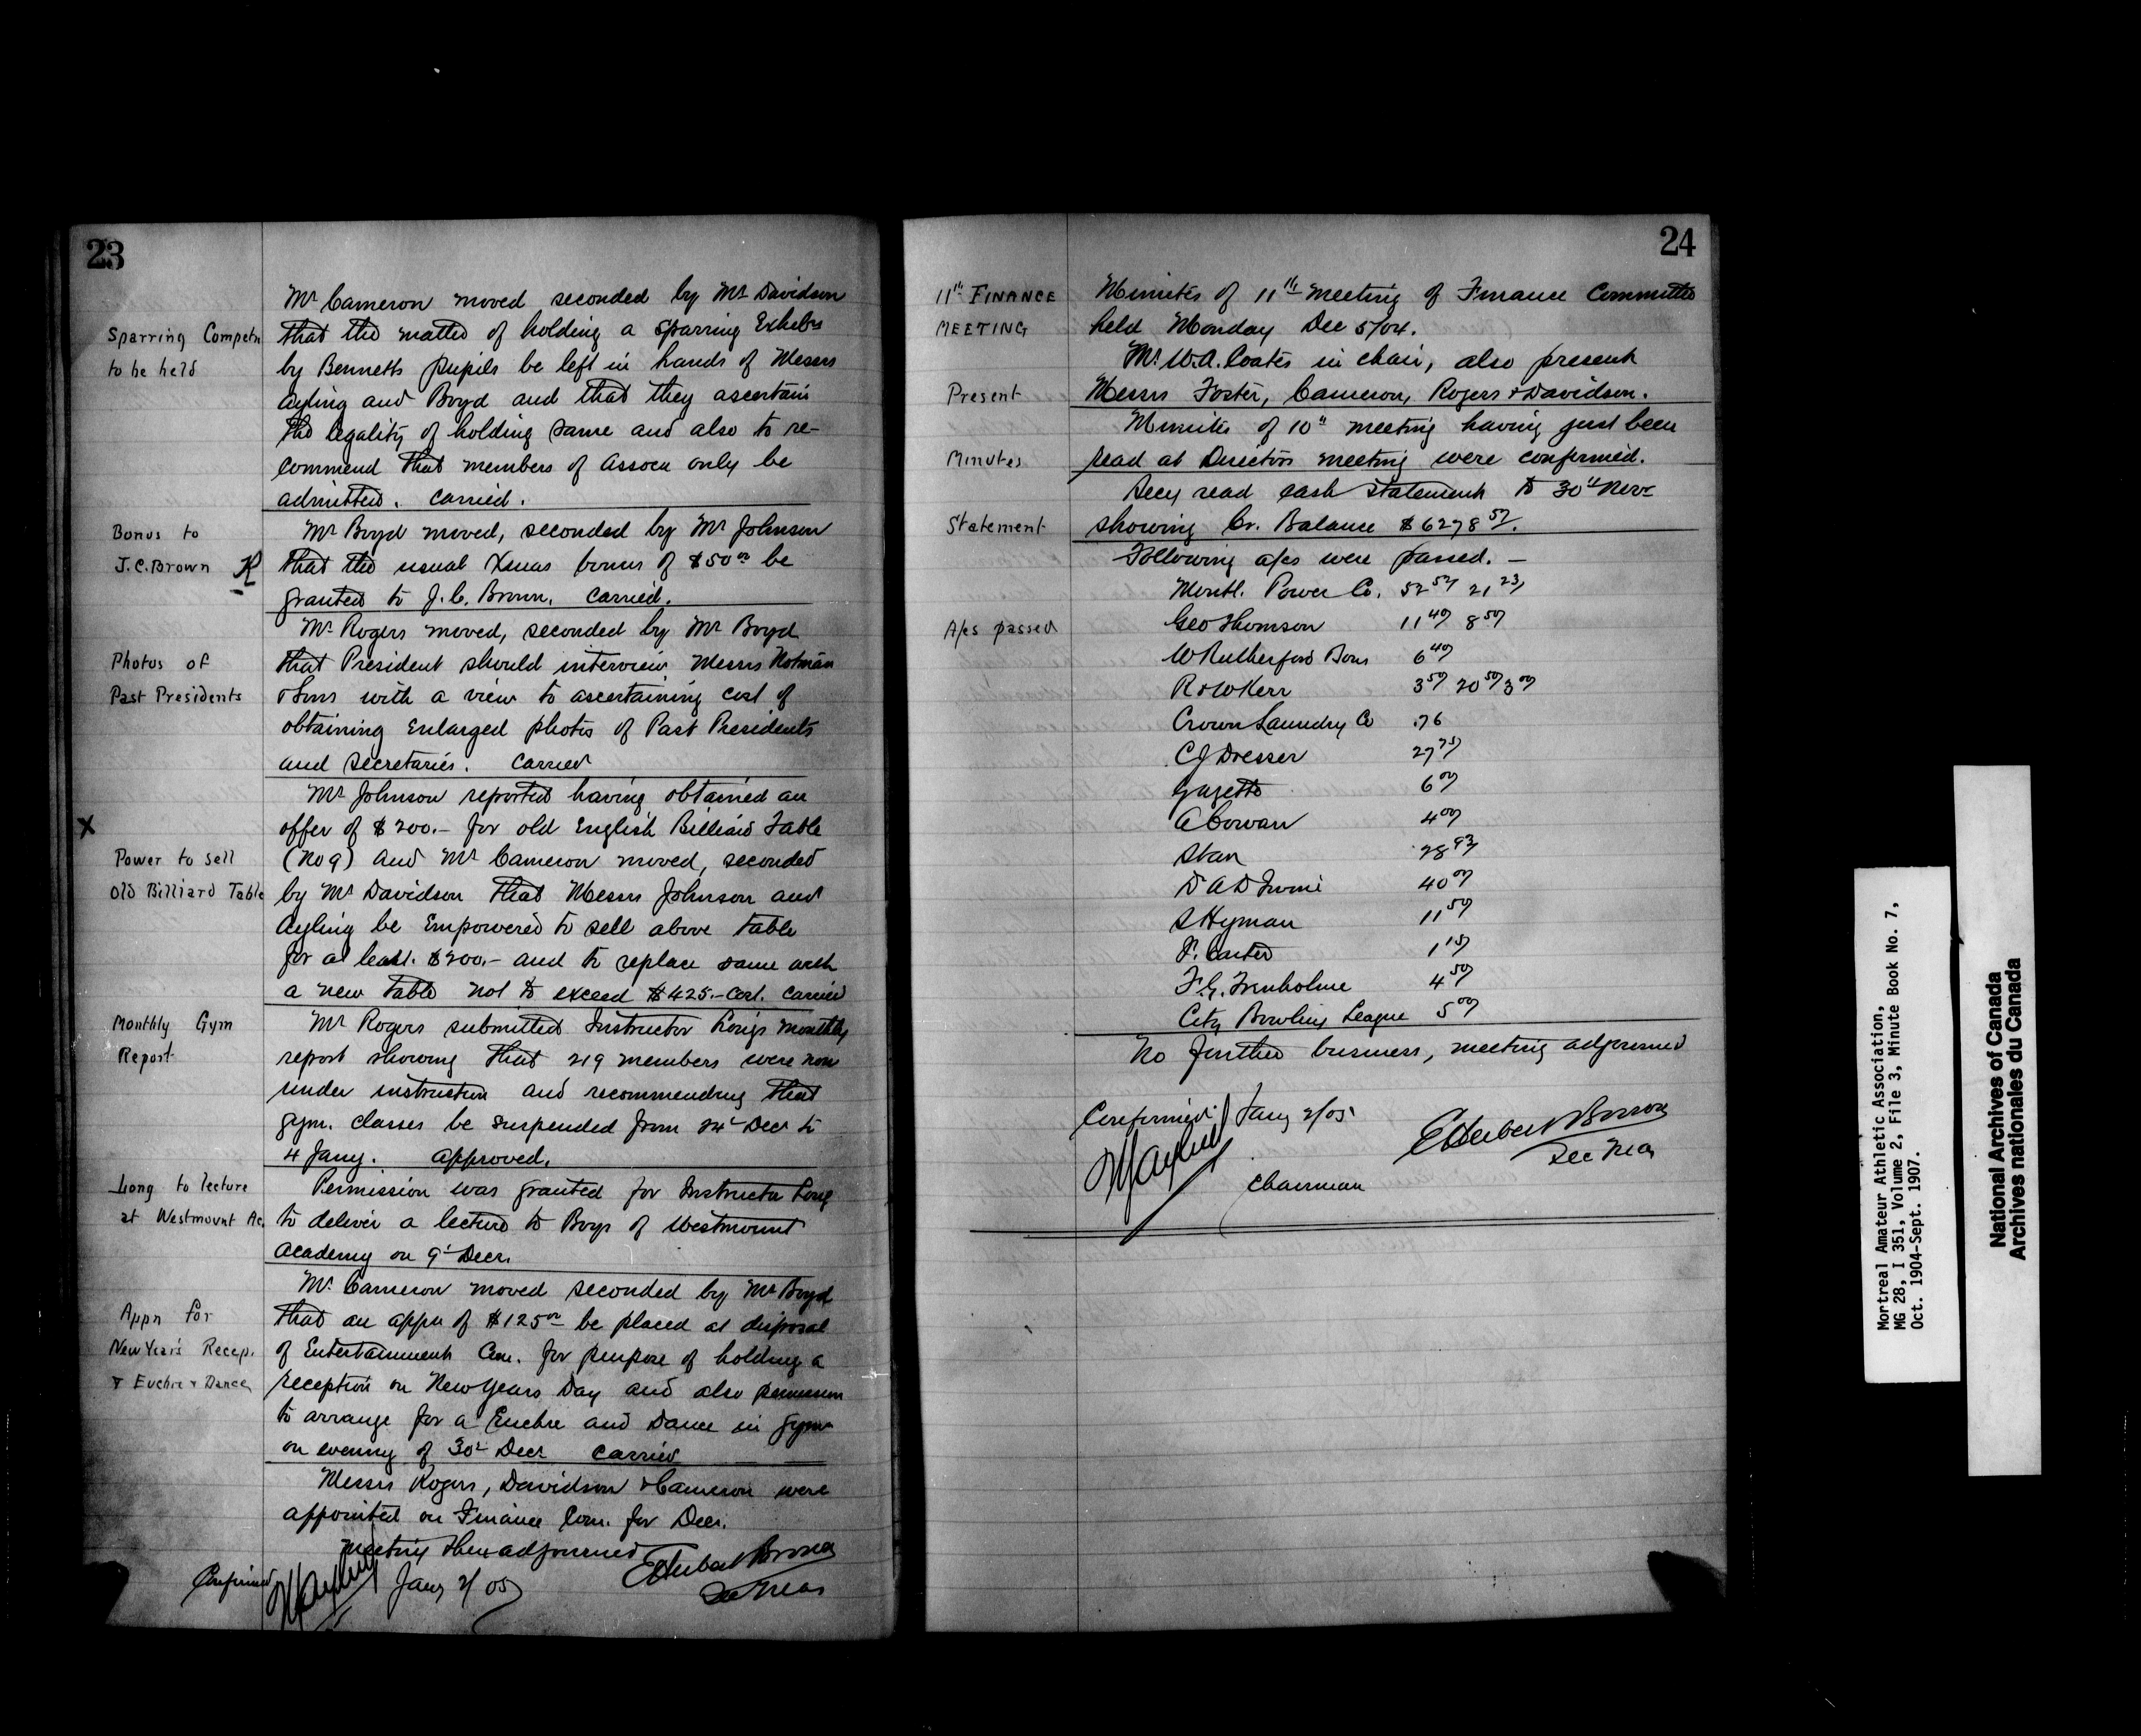 23
Mr Cameron moved seconded by Mr Davidson
Sparring Competn that the matter of holding a Sparring Exhibn
to be held by Bennetts pupils be left in hands of Messrs
Ayling and Boyd and that they ascertain
the legality of holding same and also to re-
commend that members of Assocn only be
admitted. Carried.
Bonus to Mr Boyd moved, seconded by Mr Johnson
J.C. Brown that the usual Xmas bonus of $50 00 be
granted to J.C. Brown. Carried.
Mr Rogers moved, seconded by Mr Boyd
Photos of that President should interview Messrs Notman
Past Presidents & Sons with a view to ascertaining cost of
obtaining Enlarged photos of Past Presidents
and Secretaries. Carried
Mr Johnson reported having obtained an
X offer of $200.- for old English Billiard Table
Power to sell (No 9) and Mr Cameron moved, seconded
old Billiard Table by Mr Davidson that Messrs Johnson and
Ayling be Empowered to sell above table
for at least. $200.- and to replace same with
a new table not to exceed $425.- Cost. Carried
Monthly Gym Mr Rogers submitted Instructor Long's monthly
Report report showing that 219 members were now
under instruction and recommending that
gym. classes be suspended from 24th Decr to
4 Jany. approved.
Long to lecture Permission was granted for Instructor Long
at Westmount Ac. to deliver a lecture to Boys of Westmount
Academy on 9th Decr.
Mr. Cameron moved seconded by Mr Boyd
Appn for that an appn of $125 00 be placed at disposal
New Year's Recep. of Entertainment Com. for purpose of holding a
& Euchre & Dance reception on New Years Day and also permission
to arrange for a Euchre and Dance in Gym
on evening of 30th Decr Carried
Messrs Rogers, Davidson & Cameron were
appointed on Finance Com. for Decr.
Meeting then adjourned
Confirmed Jany 2/05 E Herbert Brown
Sec Treas
24
11th FINANCE Minutes of 11th meeting of Finance Committee
MEETING held Monday Dec 5/04.
Mr. W.A. Coates in chair, also present
Present Messrs Foster, Cameron, Rogers & Davidson.
Minutes of 10th meeting having just been
Minutes read at Directors meeting were confirmed.
Secy read cash statement to 30th Novr
Statement showing Cr. Balance $6278 57.
Following a/cs were passed. -
Montl. Power Co. 52 52 21 23
A/cs passed Geo Thomson 11 40 8 50
W Rutherford Sons 6 40
R & W Kerr 3 50 20 50 3 00
Crown Laundry Co .76
C J Dresser 27 75
Gazette 6 00
A Cowan 4 00
Star 28 93
D A D Irvine 40 00
S Hyman 11 50
P. Carter 1 15
F.G. Trenholme 4 50
City Bowling League 5 00
No further business, meeting adjourned
Confirmed Jany 2/05 E Herbert Brown
Sec Treas
Chairman
Montreal Amateur Athletic Association,
MG 28, I 351, Volume 2, File 3, Minute Book No. 7,
Oct. 1904-Sept. 1907.
National Archives of Canada
Archives nationales du Canada